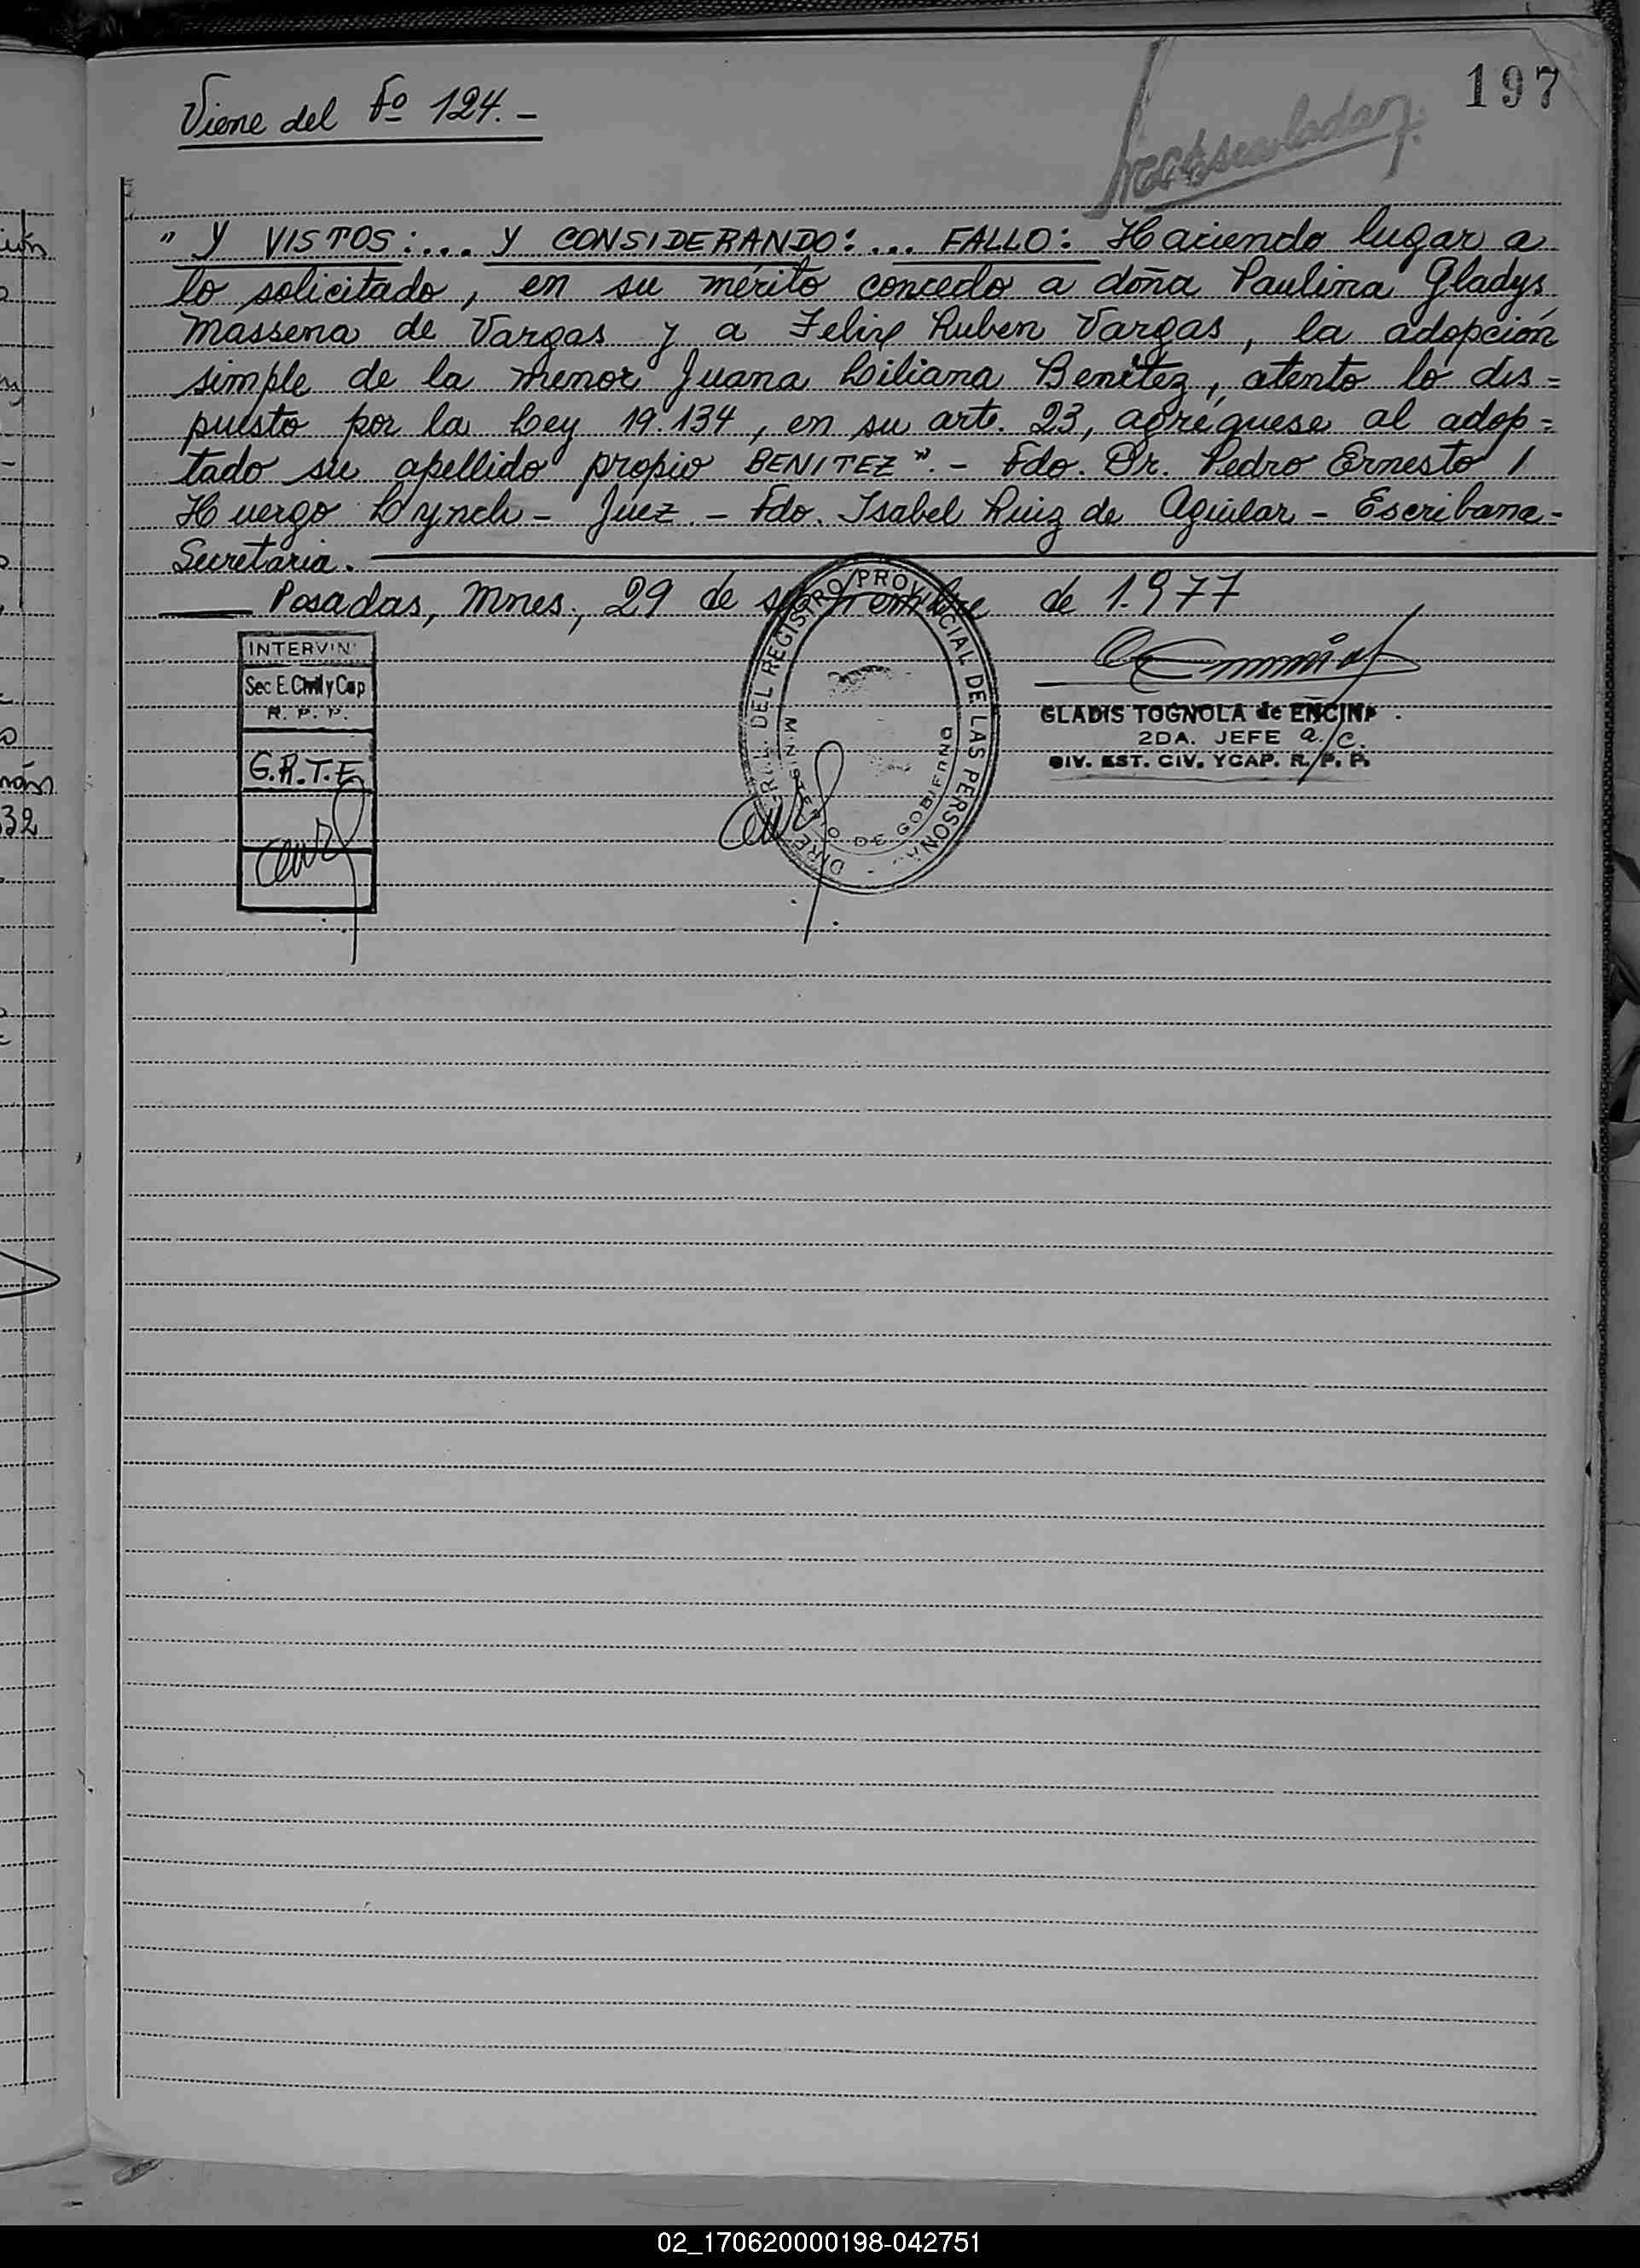 197
Viene del Fº 124.-
" Y VISTOS:... Y CONSIDERANDO:... FALLO: Haciendo lugar a
lo solicitado, en su mérito concedo a doña Paulina Gladys
Massena de Vargas y a Felix Ruben Vargas, la adopción
simple de la menor Juana Liliana Benitez, atento lo dis=
puesto por la Ley 19.134, en su art. 23, agréguese al adop=
tado su apellido propio BENITEZ".- Fdo. Dr. Pedro Ernesto /
Huergo Lynch - Juez.- Fdo. Isabel Ruiz de Aguilar - Escribana-
Secretaria.
Posadas, Mnes., 29 de septiembre de 1.977
INTERVIN
Sec E. Civil y Cap
R. P. P.
G.R.T.E
DEL REGISTRO PROVINCIAL DE LAS PERSONA
MINISTERIO DE GOBIERNO
GLADIS TOGNOLA de ENCINA
2DA. JEFE a/c.
DIV. EST. CIV. YCAP. R. P. P.
32
02_170620000198-042751